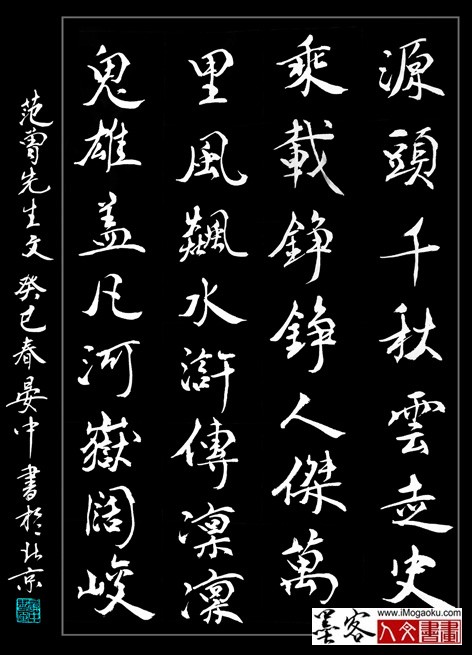 源頭千秋雲走史
乘載錚錚人傑萬
里風飆水滸傳凜凜
鬼雄盖凡河嶽闊峻
范曾先生文 癸巳春晏中書於北京
墨客
www.iMogaoku.com
人文書畫